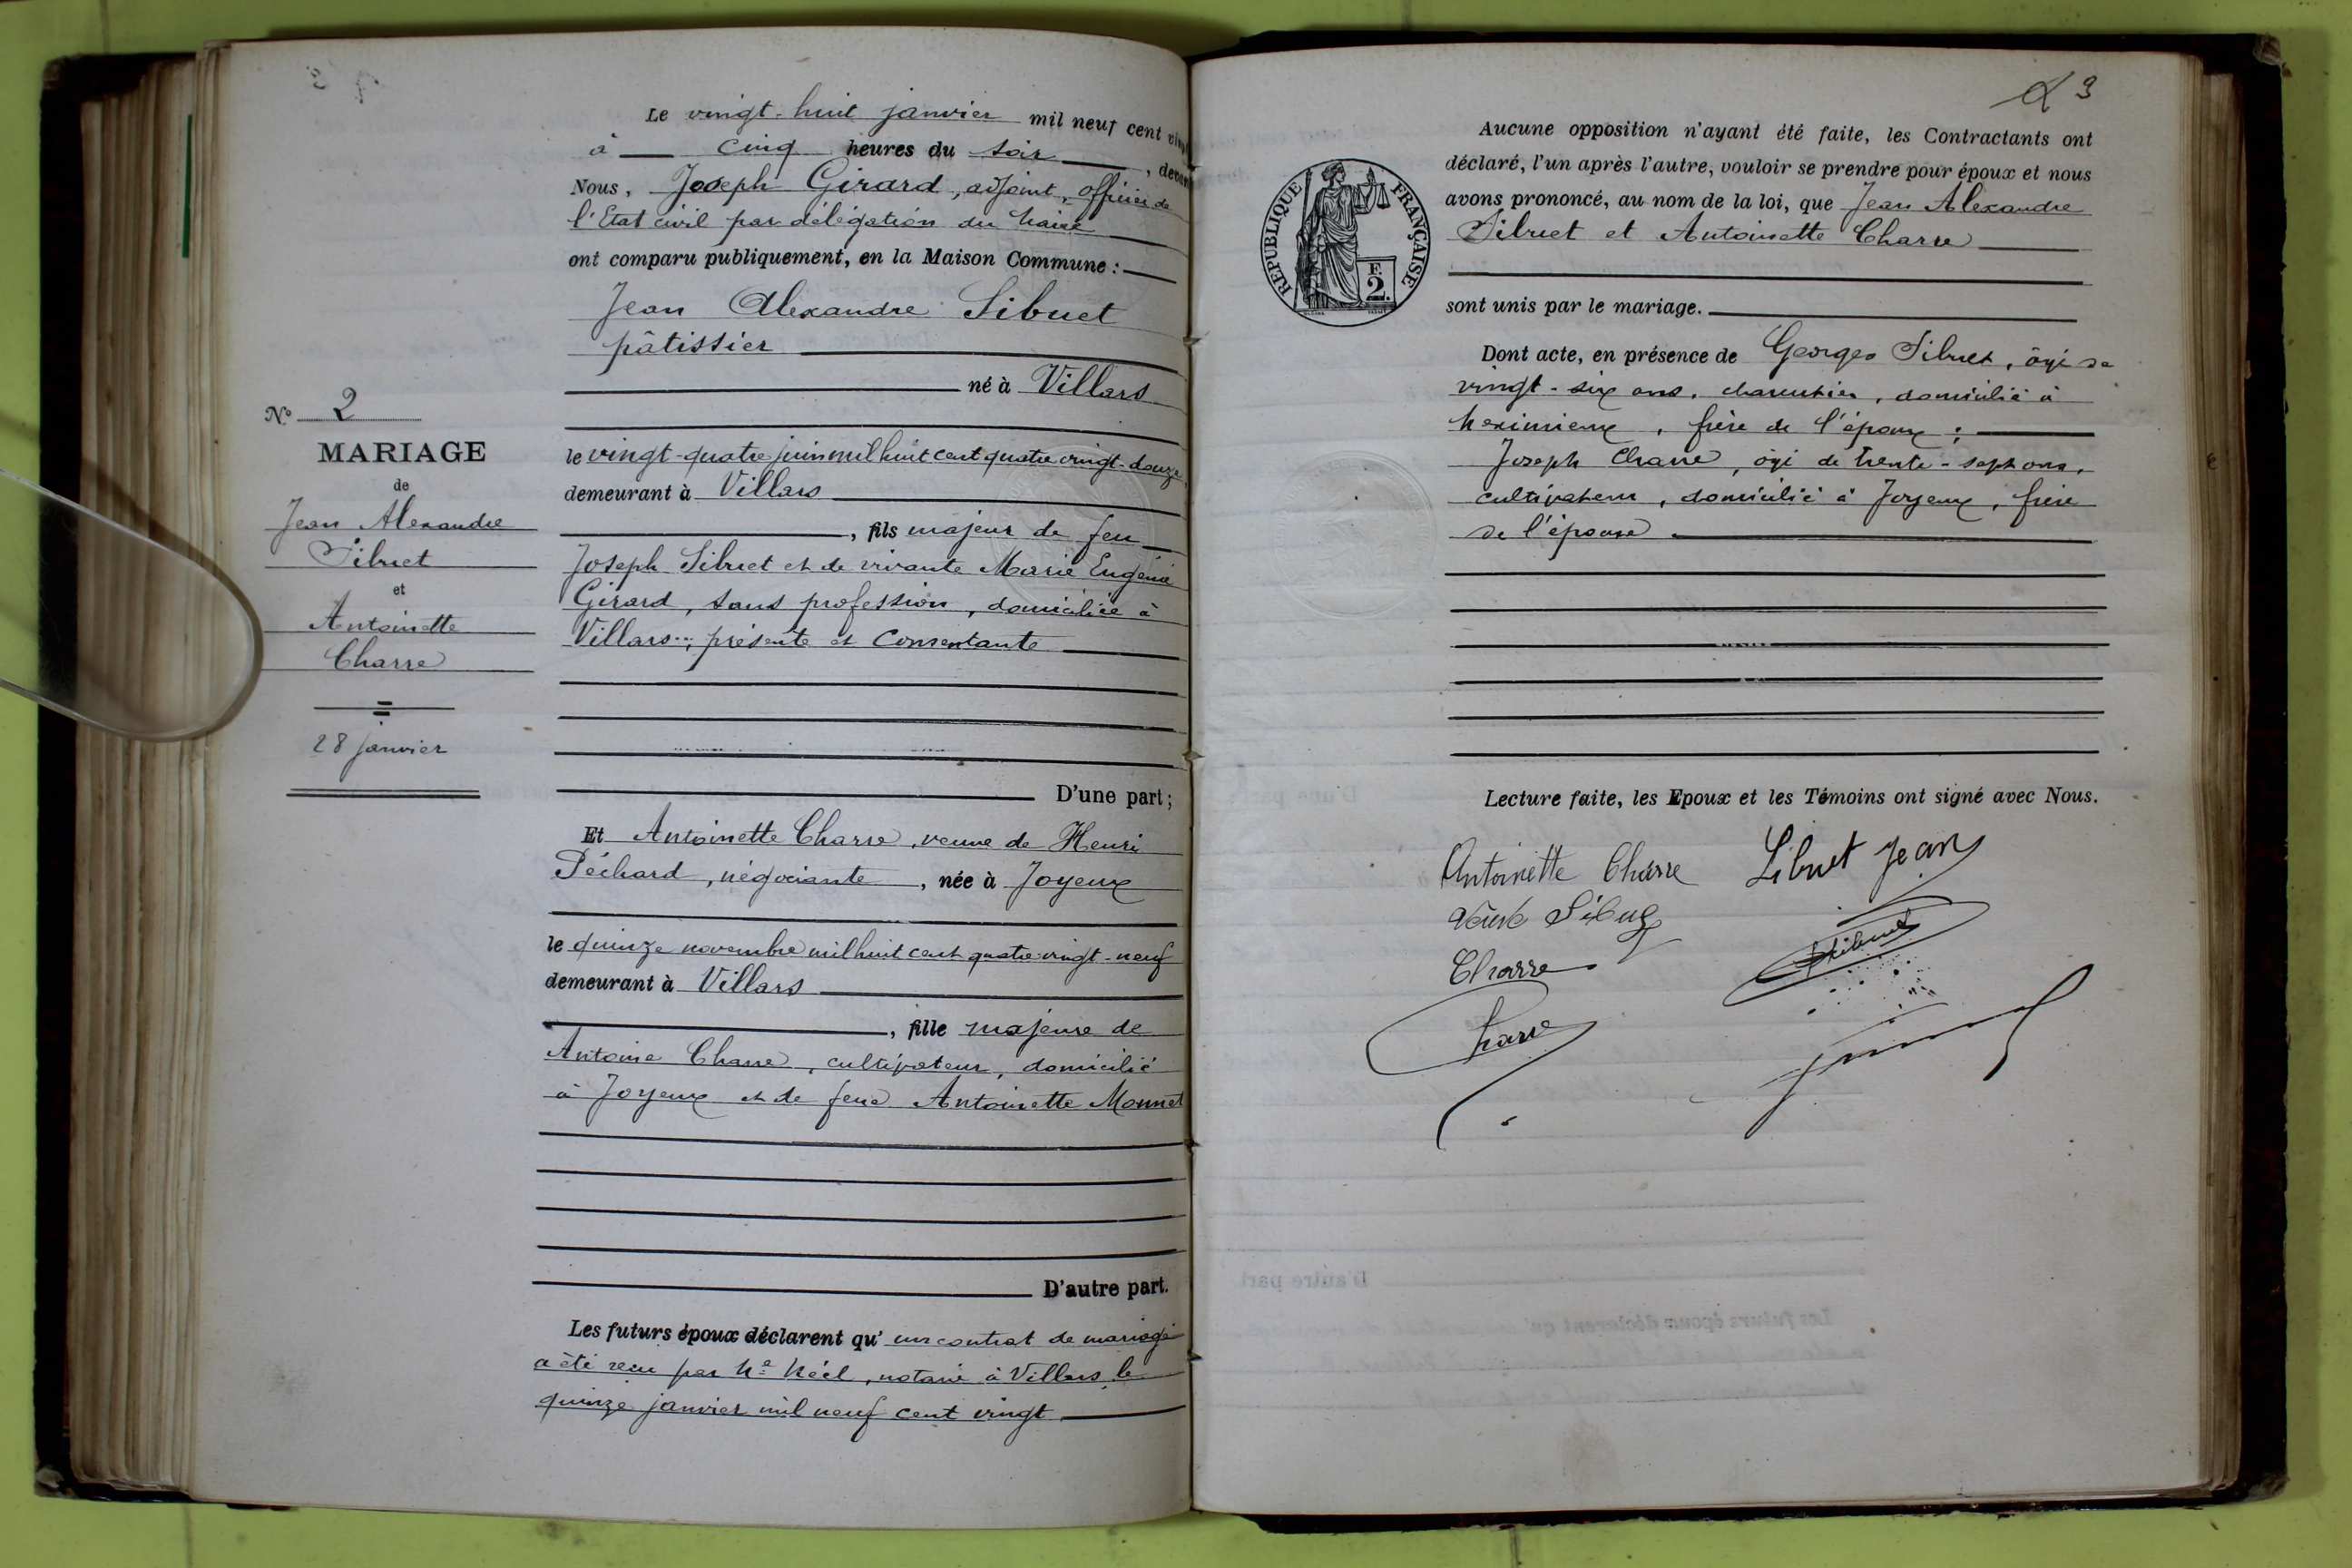 Le vingt-huit janvier mil neuf cent vingt
à cinq heures du soir, devant
Nous, Joseph Girard, adjoint, officier de
l'Etat civil par délégation du Maire
ont comparu publiquement, en la Maison Commune :
Jean Alexandre Sibuet
pâtissier
né à Villars
le vingt-quatre juin mil huit cent quatre vingt-douze,
demeurant à Villars
, fils majeur de feu
Joseph Sibuet et de vivante Marie Eugénie
Girard, sans profession, domiciliée à
Villars ; présente et consentante
D'une part ;
Et Antoinette Charre, veuve de Henri
Péchard, négociante, née à Joyeux
le quinze novembre mil huit cent quatre vingt-neuf
demeurant à Villars
, fille majeure de
Antoine Charre, cultivateur, domicilié
à Joyeux et de feue Antoinette Monnet
D'autre part.
Les futurs époux déclarent qu'un contrat de mariage
a été reçu par Me Noël, notaire à Villars, le
quinze janvier mil neuf cent vingt
N° 2
MARIAGE
de
Jean Alexandre
Sibuet
et
Antoinette
Charre
28 janvier
3
REPUBLIQUE FRANÇAISE
F.
2.
Aucune opposition n'ayant été faite, les Contractants ont
déclaré, l'un après l'autre, vouloir se prendre pour époux et nous
avons prononcé, au nom de la loi, que Jean Alexandre
Sibuet et Antoinette Charre
sont unis par le mariage.
Dont acte, en présence de Georges Sibuet, âgé de
vingt-six ans, charcutier, domicilié à
Meximieux, frère de l'époux ;
Joseph Charre, âgé de trente-sept ans,
cultivateur, domicilié à Joyeux, frère
de l'épouse.
Lecture faite, les Epoux et les Témoins ont signé avec Nous.
Antoinette Charre Sibuet Jean
Veuve Sibuet
Sibuet
Charre
Charre